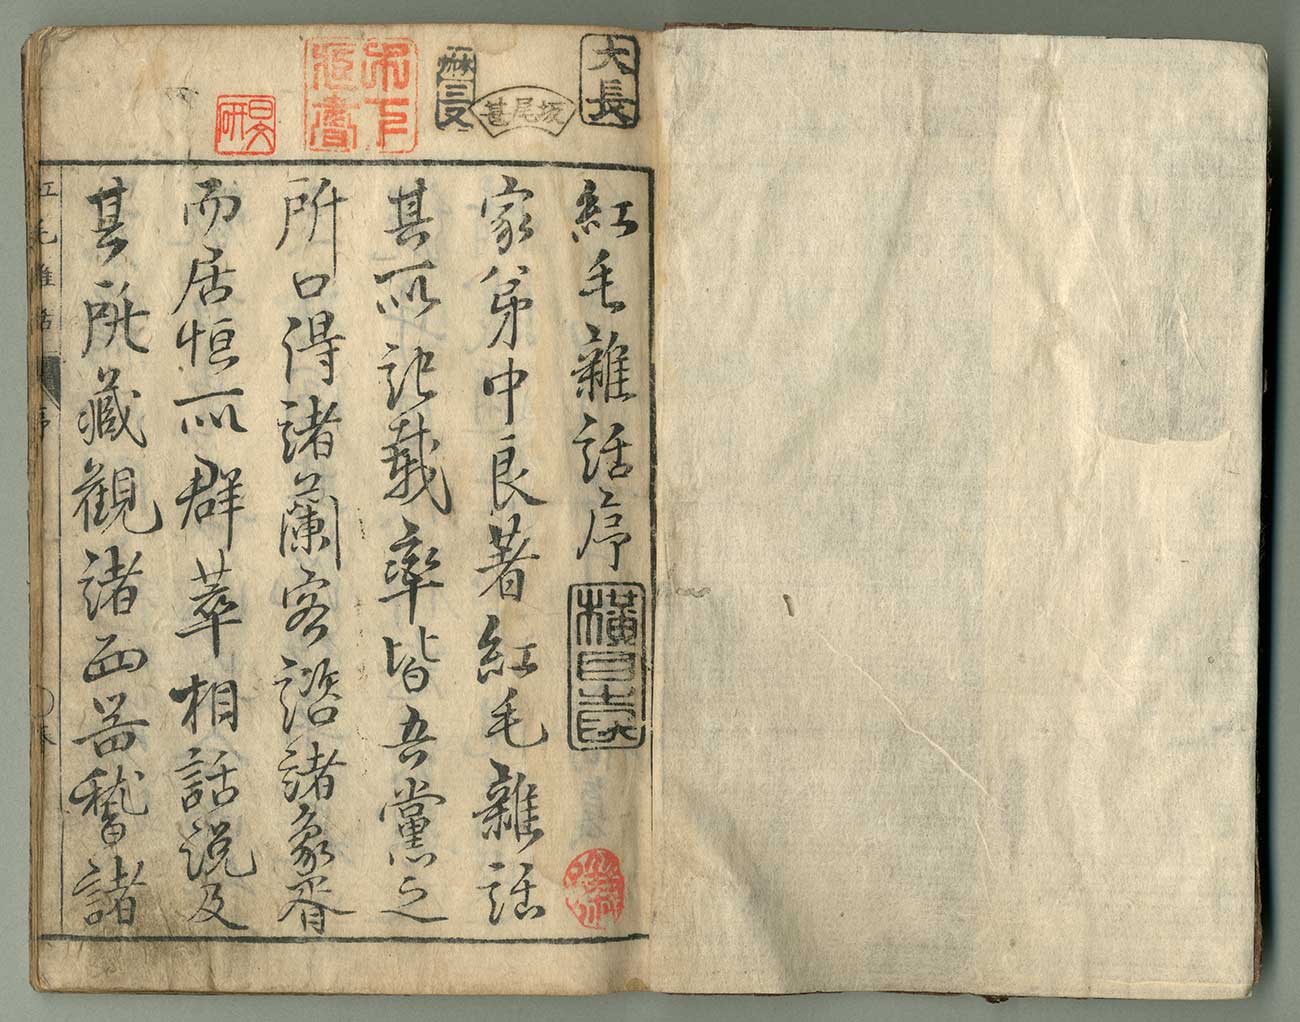 紅毛雜話序
家弟中良著紅毛雜話
其所記載率皆吾黨之
所口得諸蘭客諮諸象胥
而居恒所群萃相話說及
其所藏觀諸西器稽諸
大長
坂尾甚